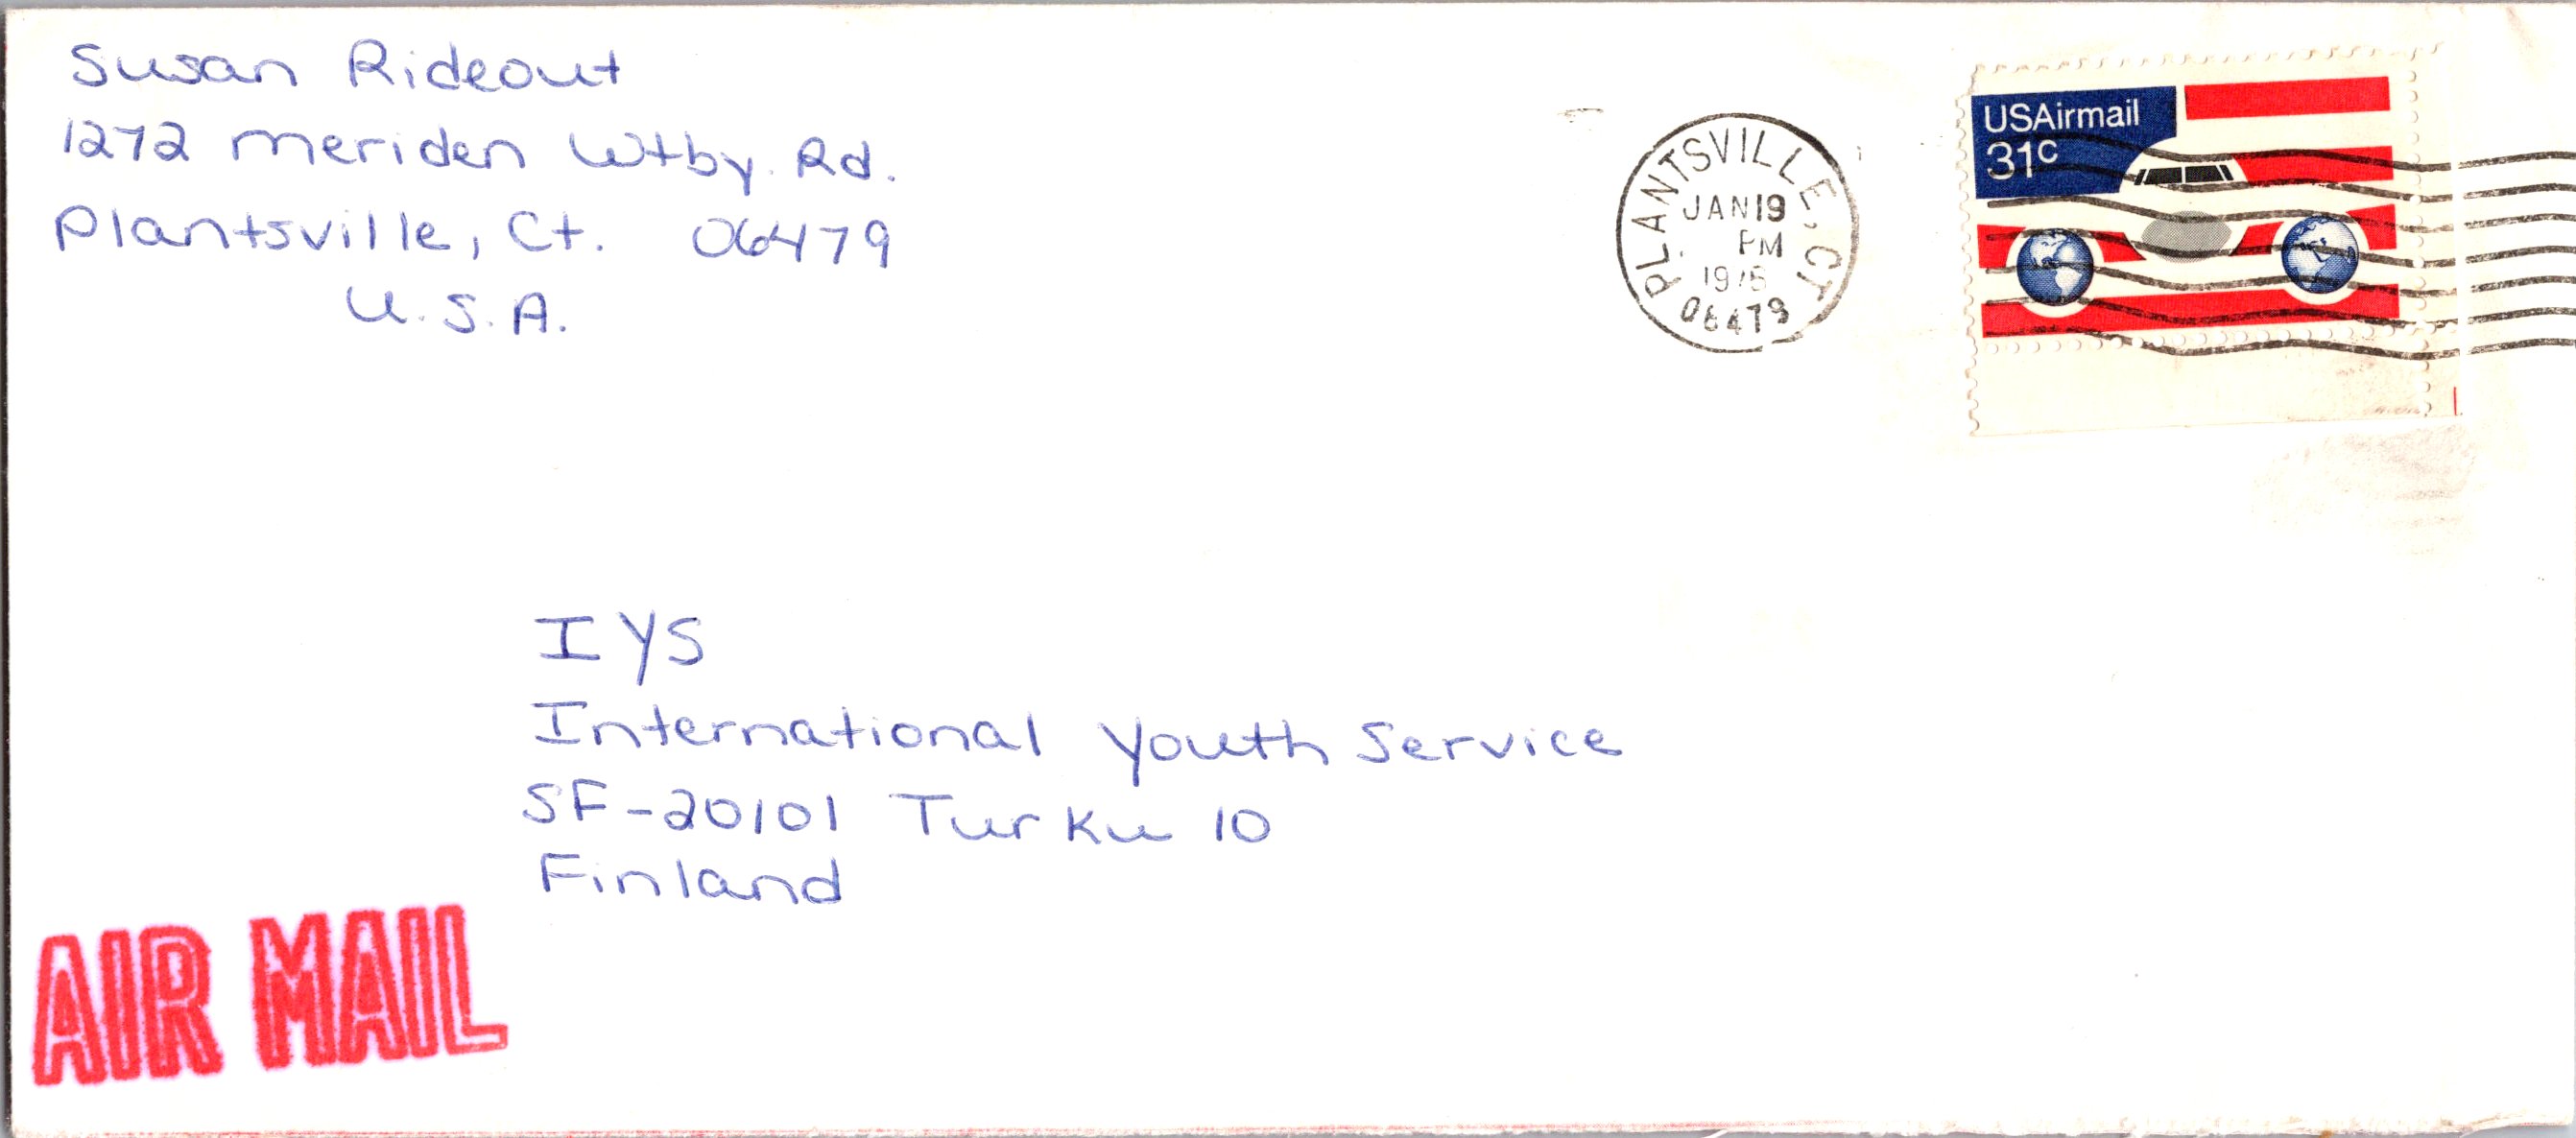 Susan Rideout
1272 Meriden Wtby. Rd.
Plantsville, Ct. 06479
U.S.A.
PLANTSVILLE, CT
JAN 19
PM
06479
USAirmail
31c
IYS
International Youth Service
SF-20101 Turku 10
Finland
AIR MAIL